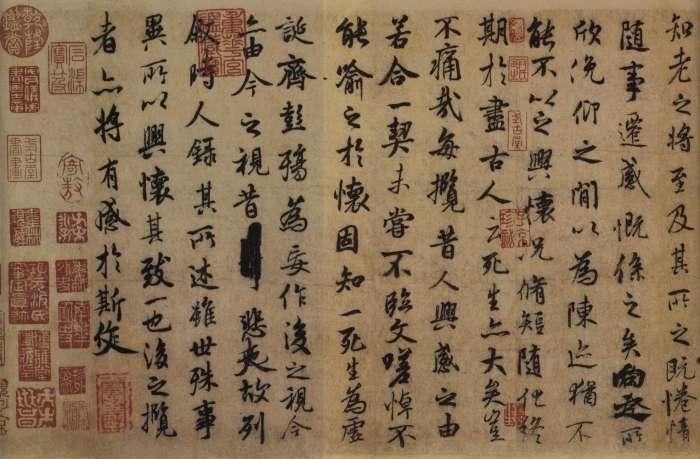 知老之將至及其所之既惓情
随事遷感慨係之矣向之所
欣俛仰之閒以為陳迹猶不
能不以之興懷況脩短随化終
期於盡古人云死生亦大矣豈
不痛哉每攬昔人興感之由
若合一契未嘗不臨文嗟悼不
能喻之於懷固知一死生為虛
誕齊彭殤為妄作後之視今
亦由今之視昔悲夫故列
敘時人錄其所述雖世殊事
異所以興懷其致一也後之攬
者亦將有感於斯文